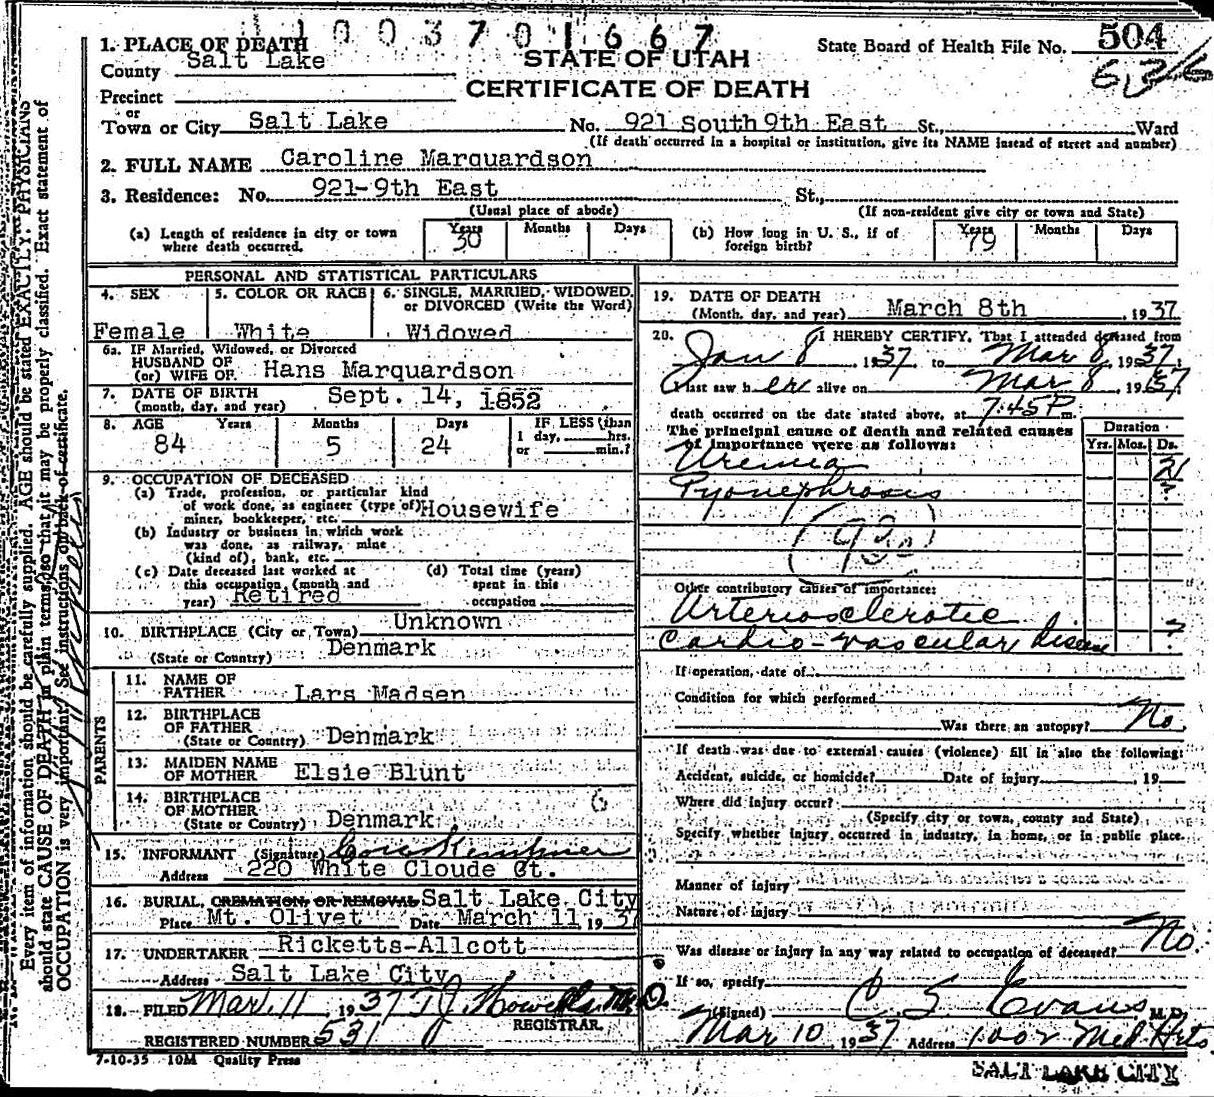 1 1 0 0 3 7 0 1 6 6 7
1. PLACE OF DEATH
STATE OF UTAH
State Board of Health File No. 504
County Salt Lake
CERTIFICATE OF DEATH
Precinct
or
Town or City Salt Lake No. 921 South 9th East St., Ward
(If death occurred in a hospital or institution, give its NAME instead of street and number)
2. FULL NAME Caroline Marquardson
3. Residence: No. 921-9th East St.,
(Usual place of abode) (If non-resident give city or town and State)
(a) Length of residence in city or town where death occurred. Years 30 Months Days
(b) How long in U. S., if of foreign birth? Years 79 Months Days
PERSONAL AND STATISTICAL PARTICULARS
4. SEX Female
5. COLOR OR RACE White
6. SINGLE, MARRIED, WIDOWED, or DIVORCED (Write the Word) Widowed
6a. IF Married, Widowed, or Divorced
HUSBAND OF
(or) WIFE OF Hans Marquardson
7. DATE OF BIRTH
(month, day, and year) Sept. 14, 1852
8. AGE Years 84 Months 5 Days 24 IF LESS than
1 day, hrs.
or min.?
9. OCCUPATION OF DECEASED
(a) Trade, profession, or particular kind
of work done, as engineer (type of)
miner, bookkeeper, etc. Housewife
(b) Industry or business in which work
was done, as railway, mine
(kind of), bank, etc.
(c) Date deceased last worked at
this occupation, (month and
year) Retired
(d) Total time (years)
spent in this
occupation
10. BIRTHPLACE (City or Town) Unknown
(State or Country) Denmark
PARENTS
11. NAME OF
FATHER Lars Madsen
12. BIRTHPLACE
OF FATHER
(State or Country) Denmark
13. MAIDEN NAME
OF MOTHER Elsie Blunt
14. BIRTHPLACE
OF MOTHER
(State or Country) Denmark
15. INFORMANT (Signature)
Address 220 White Cloude Ct.
16. BURIAL, CREMATION, OR REMOVAL Salt Lake City
Place Mt. Olivet Date March 11 1937
17. UNDERTAKER Ricketts-Allcott
Address Salt Lake City
18. FILED Mar. 11 1937 T.J. Howells M.D.
REGISTRAR.
REGISTERED NUMBER 531
7-10-35 10M Quality Press
19. DATE OF DEATH
(Month, day, and year) March 8th, 1937
20. I HEREBY CERTIFY, That I attended deceased from
Jan 8, 1937, to Mar 8, 1937,
I last saw her alive on Mar 8, 1937,
death occurred on the date stated above, at 7:45 P m.
The principal cause of death and related causes
of importance were as follows:
Duration
Yrs. Mos. Ds.
Uremia 21
Pyonephrosis ?
Other contributory causes of importance:
Arteriosclerotic
Cardio-vascular disease ?
If operation, date of
Condition for which performed
Was there an autopsy? No
If death was due to external causes (violence) fill in also the following:
Accident, suicide, or homicide? Date of injury , 19
Where did injury occur?
(Specify city or town, county and State)
Specify whether injury occurred in industry, in home, or in public place.
Manner of injury
Nature of injury
Was disease or injury in any way related to occupation of deceased? No
If so, specify
(Signed) C S Evans M.D.
Mar 10 1937 Address 1002 Med Arts
SALT LAKE CITY
Every item of information should be carefully supplied. AGE should be stated EXACTLY. PHYSICIANS
should state CAUSE OF DEATH in plain terms, so that it may be properly classified. Exact statement of
OCCUPATION is very important. See instructions on back of certificate.